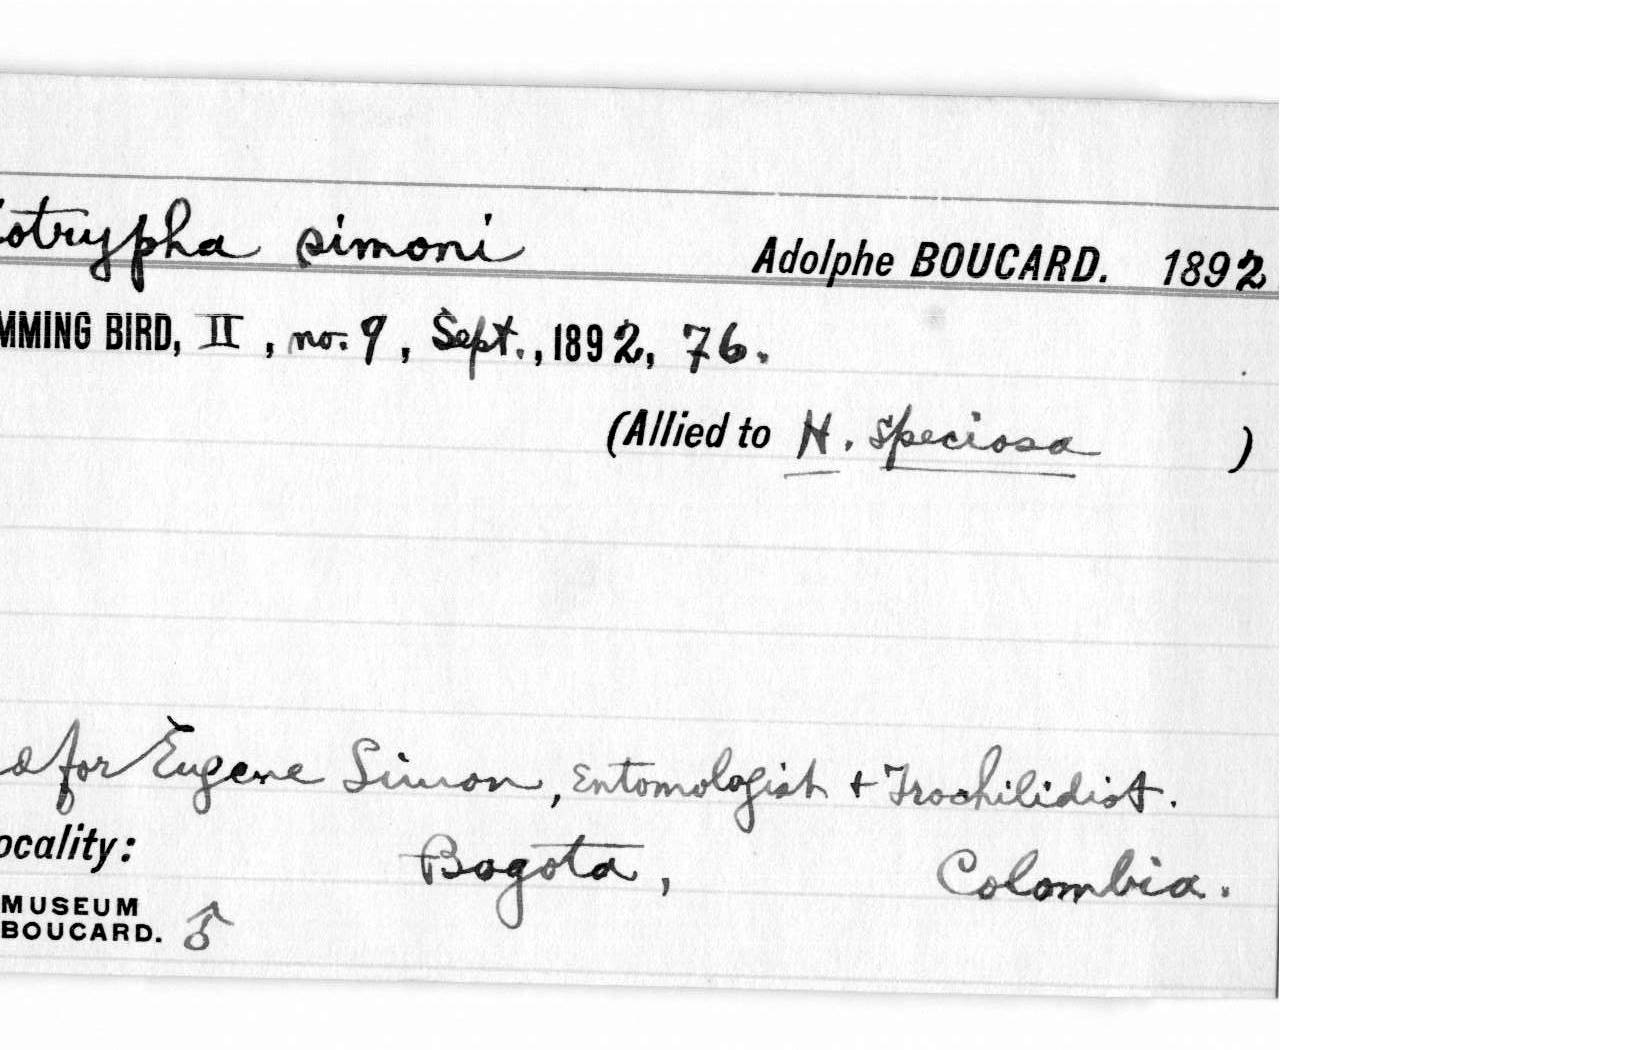 iotrypha simoni Adolphe BOUCARD. 1892
MMING BIRD, II, no. 9, Sept., 1892, 76.
(Allied to H. speciosa )
d for Eugene Simon, Entomologist + Trochilidist.
ocality: Bogota, Colombia.
MUSEUM
BOUCARD. ♂